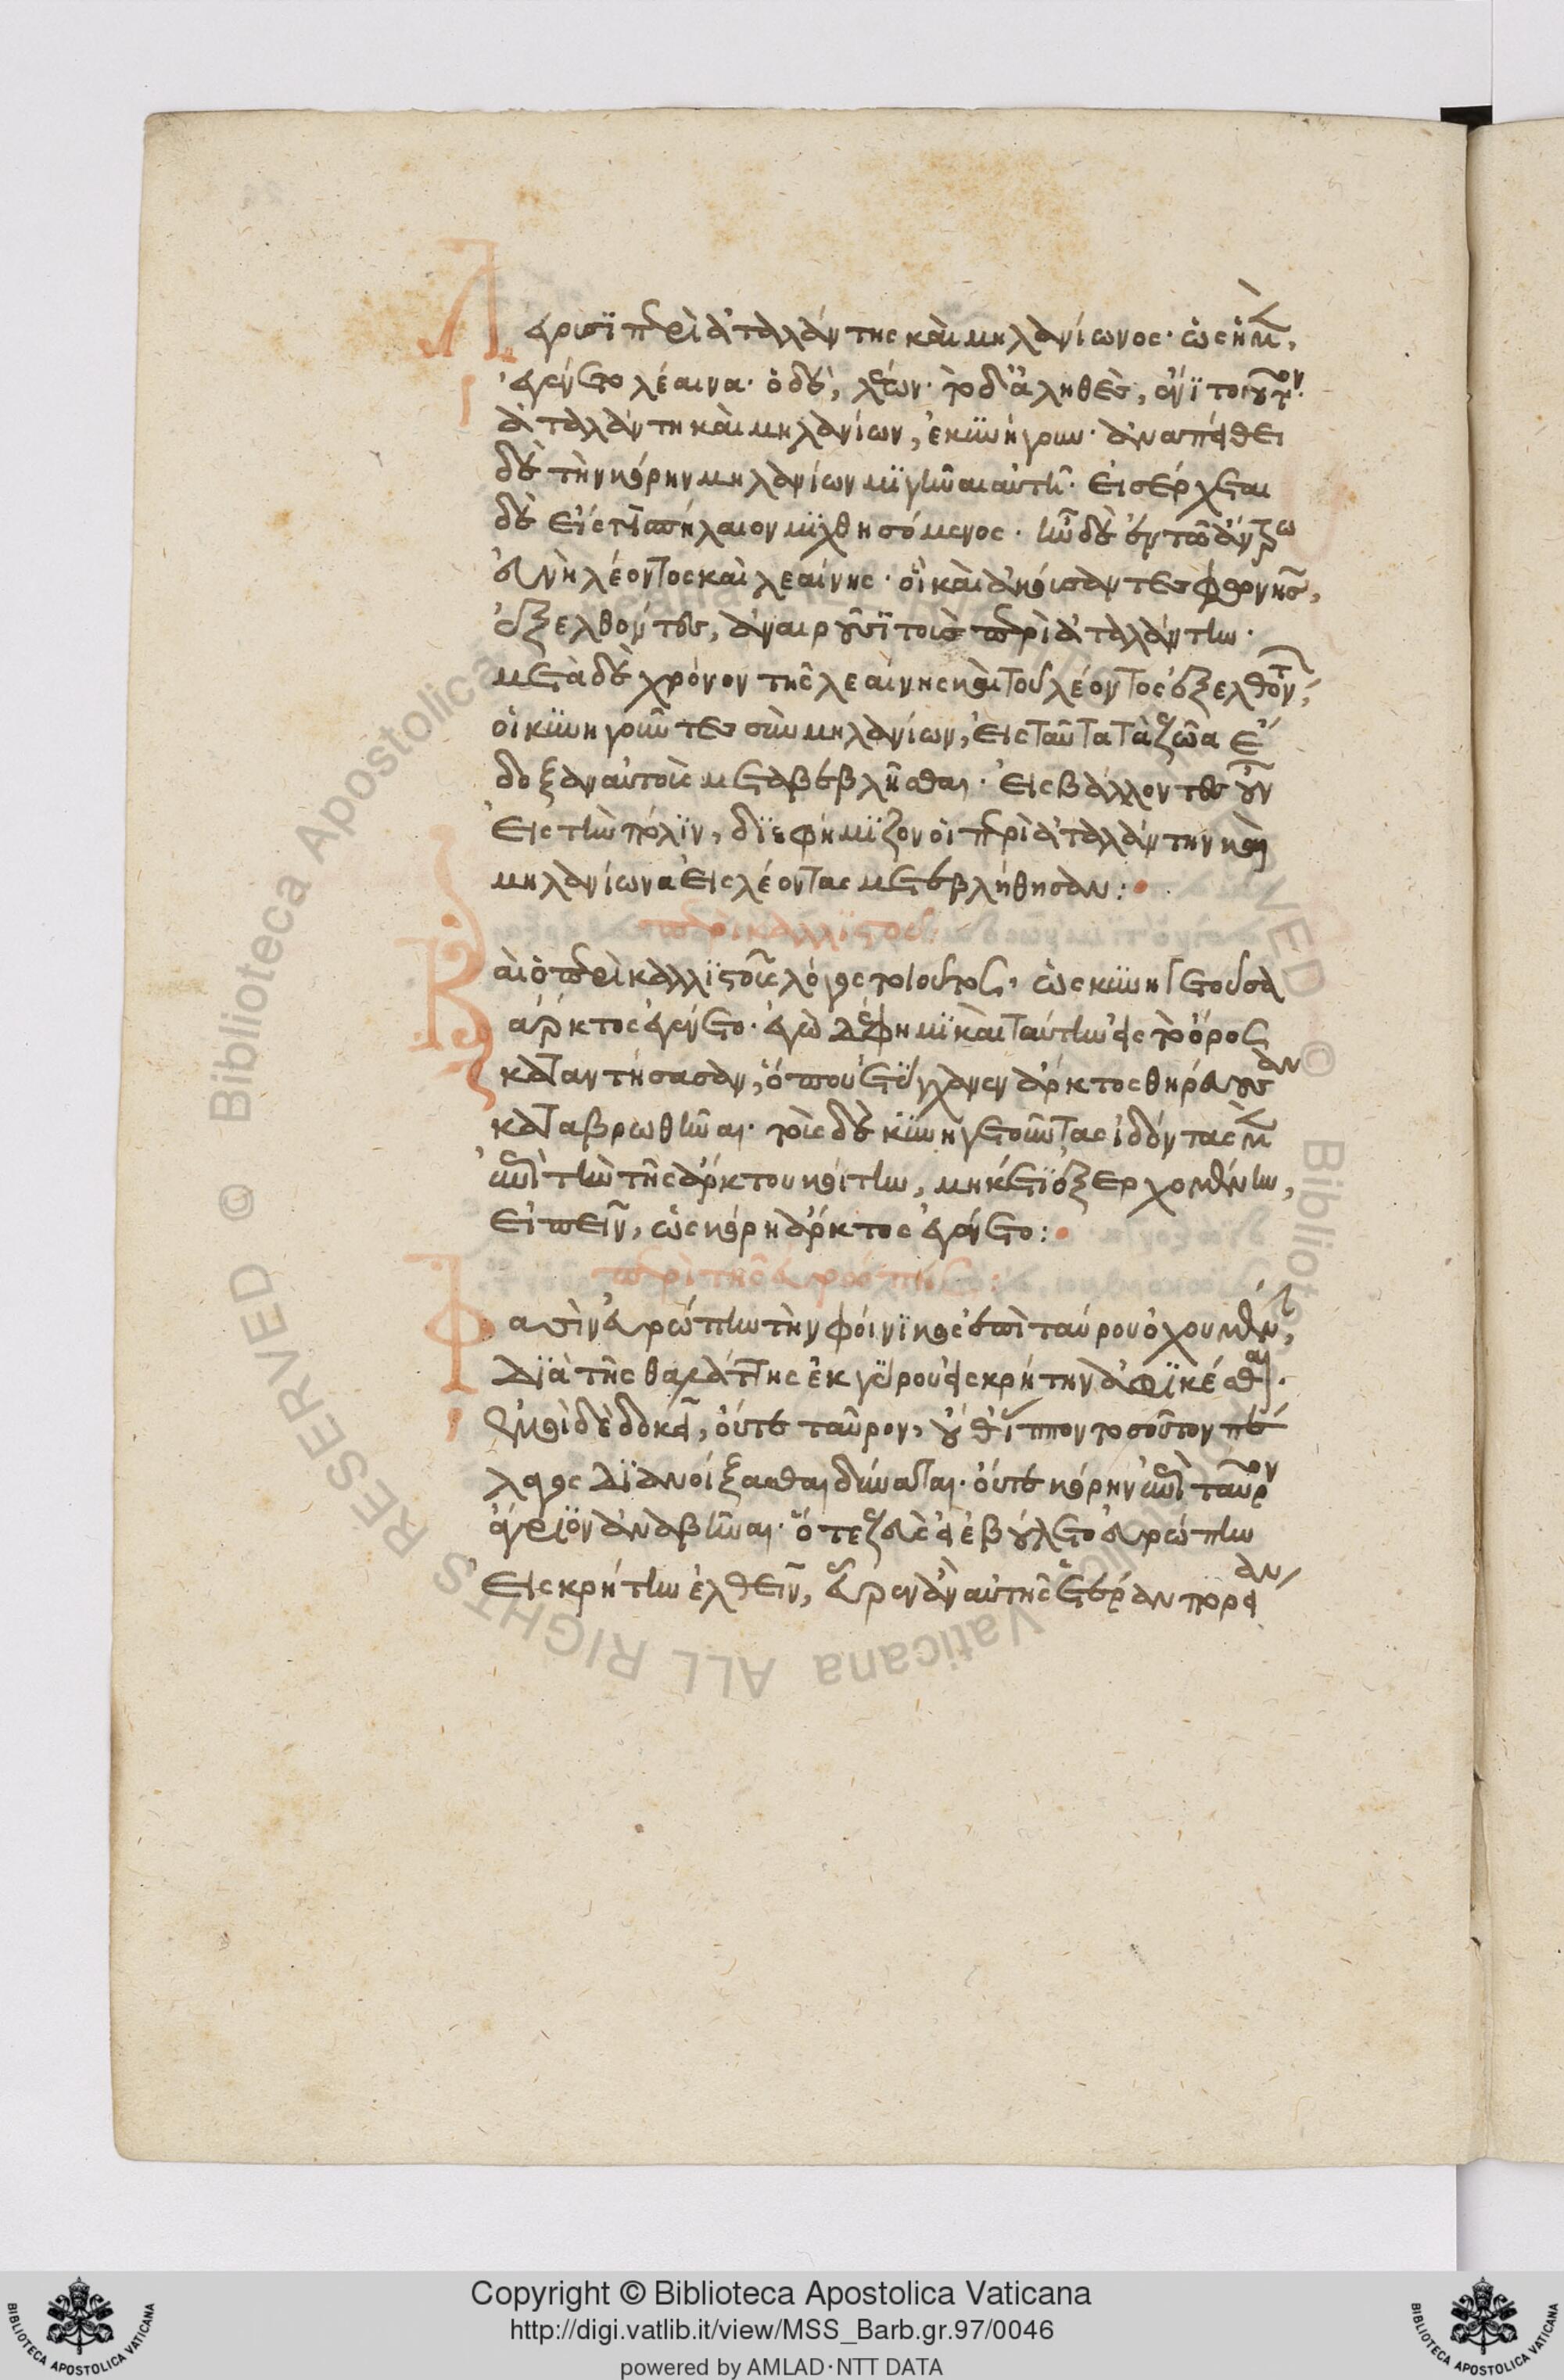 Λέγουσϊ περὶ ἀταλάντης καὶ μηλανίωνος· ὡς ἡ μὲν,
ἐγένετο λέαινα· ὁ δὲ, λέων· τὸ δ' ἀληθὲς, ἐνϊ τοιοῦτον·
ἀταλάντη καὶ μηλανίων, ἐκυνήγουν· ἀναπείθει
δὲ τὴν κόρην μηλανίων μϊγῆναι αὐτῆ· εἰσέρχεται
δὲ εἴς τι σπήλαιον μϊχθησόμενος· ἦν δὲ ἐν τῶ ἄντρω
εὐνὴ λέοντος καὶ λεαίνης· οἳ καὶ ἀκούσαντες φωνῆς,
ἐξελθόντες, ἀναιροῦσϊ τοὺς περὶ ἀταλάντην·
μετὰ δὲ χρόνον τῆς λεαίνης καὶ τοῦ λέοντος ἐξελθόντων,
οἱ κϋνηγοῦντες σὺν μηλανίων, εἰς ταῦτα τὰ ζῶα ἔ
δοξαν αὐτοὺς μεταβεβλῆσθαι· εἰσβάλλοντες οὖν
εἰς τὴν πόλϊν, δϊεφήμϊζον οἱ περὶ ἀταλάντην καὶ
μηλανίωνα εἰς λέοντας μετεβλήθησαν:
περὶ καλλϊστοῦς:
Καὶ ὁ περὶ καλλϊστοῦς λόγος τοιοῦτος, ὡς κϋνηγετοῦσα
ἄρκτος ἐγένετο· ἐγὼ δέ φημϊ καὶ ταύτην εἰς τὸ ὄρος
καταντήσασαν, ὅπου ἐτϋγχανεν ἄρκτος θηρεύουσαν
καταβρωθῆναι· τοὺς δὲ κϋνηγετοῦντας ἰδόντας μὲν
ἐπὶ τὴν τῆς ἄρκτου κοίτην, μηκέτϊ ἐξερχομένην,
εἰπεῖν, ὡς κόρη ἄρκτος ἐγένετο:
περὶ τῆς εὐρώπης:
Φασὶν εὐρώπην τὴν φοίνϊκος ἐπὶ ταύρου ὀχουμένην,
δϊὰ τῆς θαλάττης ἐκ τύρου εἰς κρήτην ἀφϊκέσθαι·
ἐμοὶ δὲ δοκεῖ, οὔτε ταῦρον, οὔθ' ἵππον τοσοῦτον πέ
λαγος δϊανοίξασθαι δύναται· οὔτε κόρην ἐπὶ ταῦρον
ἄγρϊον ἀναβῆναι· ὅ τε ζεὺς εἰ ἐβούλετο εὐρώπην
εἰς κρήτην ἐλθεῖν, εὗρεν ἂν αὐτῆς ἑτέραν πορείαν
Copyright © Biblioteca Apostolica Vaticana
http://digi.vatlib.it/view/MSS_Barb.gr.97/0046
powered by AMLAD·NTT DATA
BIBLIOTECA APOSTOLICA VATICANA
BIBLIOTECA APOSTOLICA VATICANA